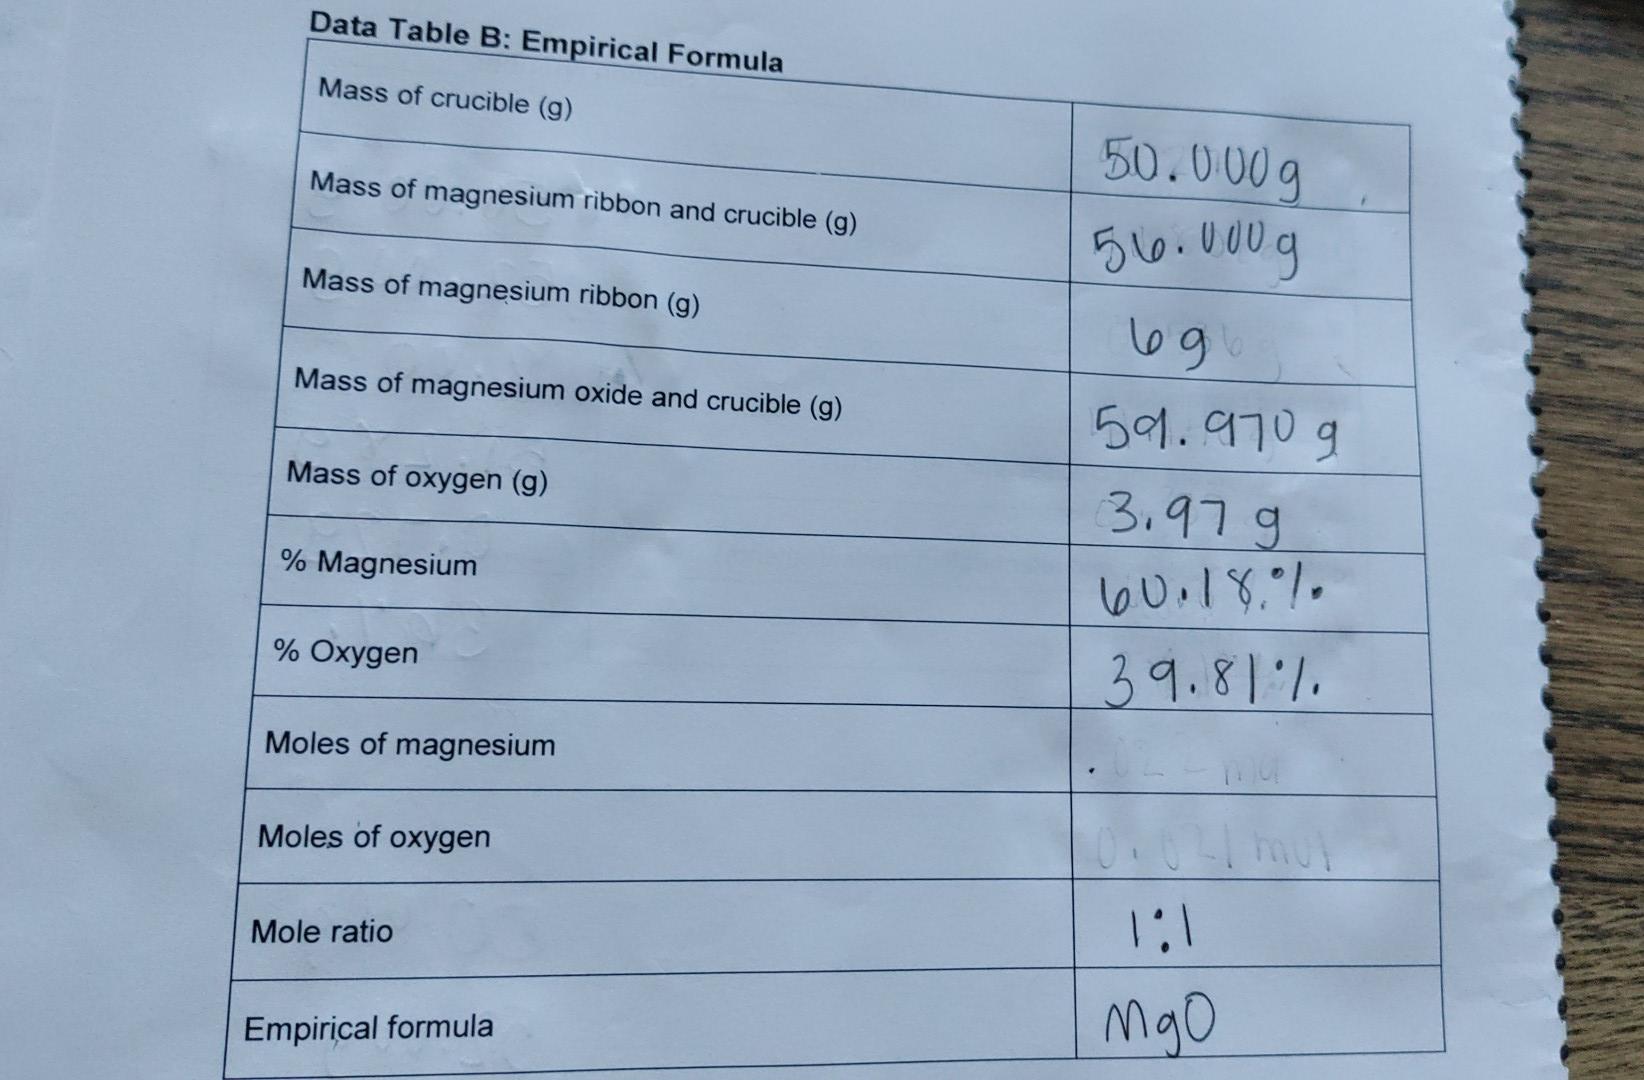 Data Table B: Empirical Formula
Mass of crucible (g) 50.000g
Mass of magnesium ribbon and crucible (g) 56.000g
Mass of magnesium ribbon (g) 6g
Mass of magnesium oxide and crucible (g) 59.970 g
Mass of oxygen (g) 3.97 g
% Magnesium 60.18%
% Oxygen 39.81%
Moles of magnesium
Moles of oxygen 0.021 mol
Mole ratio 1:1
Empirical formula MgO